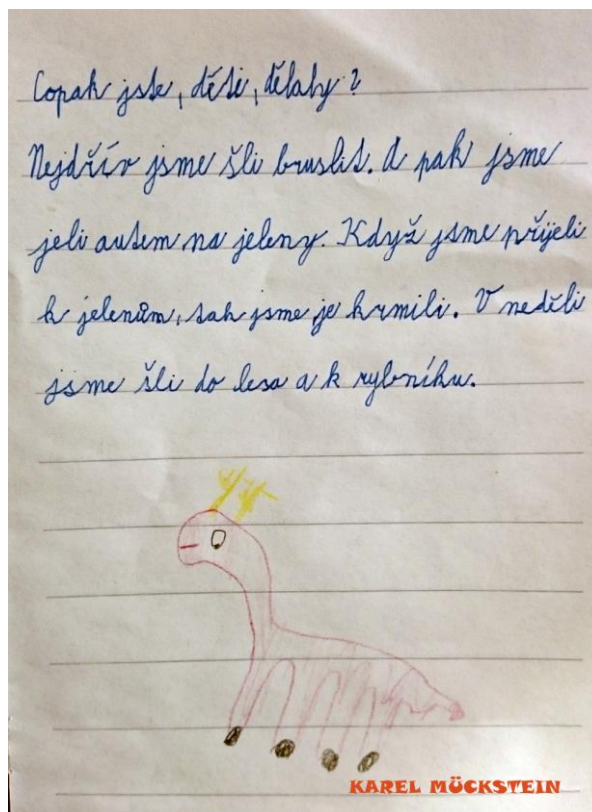 Copak jste, děti, dělaly?
Nejdřív jsme šli bruslit. A pak jsme
jeli autem na jeleny. Když jsme přijeli
k jelenům, tak jsme je krmili. V neděli
jsme šli do lesa a k rybníku.
KAREL MÜCKSTEIN